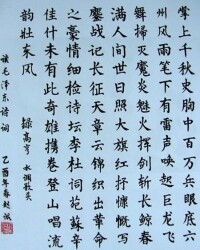 掌上千秋史胸中百万兵眼底六
州风雨笔下有雷声唤起巨龙飞
舞扫灭魔炎魅火挥剑斩长鲸春
满人间世日照大旗红抒慷慨写
鏖战记长征天章云锦织出革命
之豪情细检诗坛李杜词苑苏辛
佳什未有此奇雄携卷登山唱流
韵壮东风
录高亨 水调歌头
读毛泽东诗词 乙酉年春赵